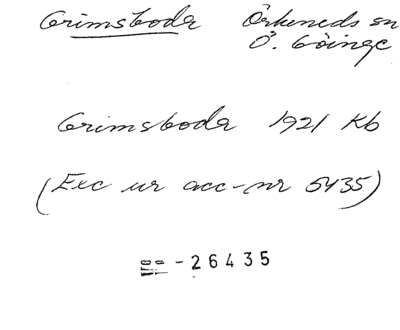 Grimsboda Örkeneds sn
Ö. Göinge
Grimsboda 1921 Kb
(Exc ur acc-nr 5435)
== -26435